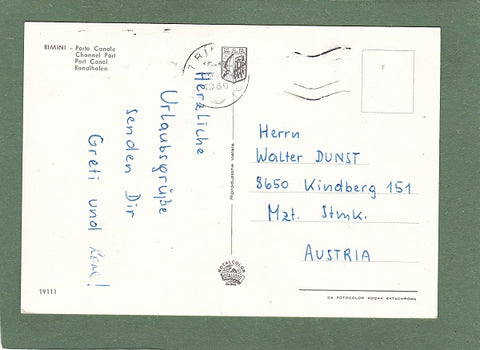 RIMINI - Porto Canale
Channel Port
Port Canal
Kanalhafen
Herzliche
Urlaubsgrüße
senden Dir
Greti und
Herrn
Walter DUNST
8650 Kindberg 151
Mzt. Stmk.
AUSTRIA
Riproduzione vietata
1969
ROTALCOLOR
19111
DA FOTOCOLOR KODAK EKTACHROME